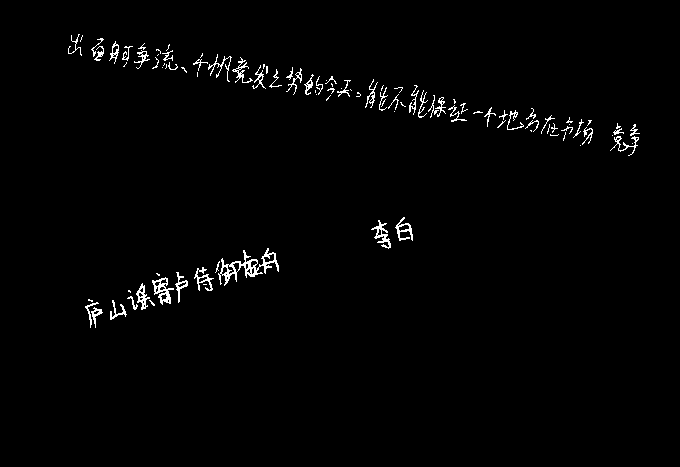 出百舸争流、千帆竞发之势的今天,能不能保证一个地方在市场 竞争
李白
庐山谣寄卢侍御虚舟